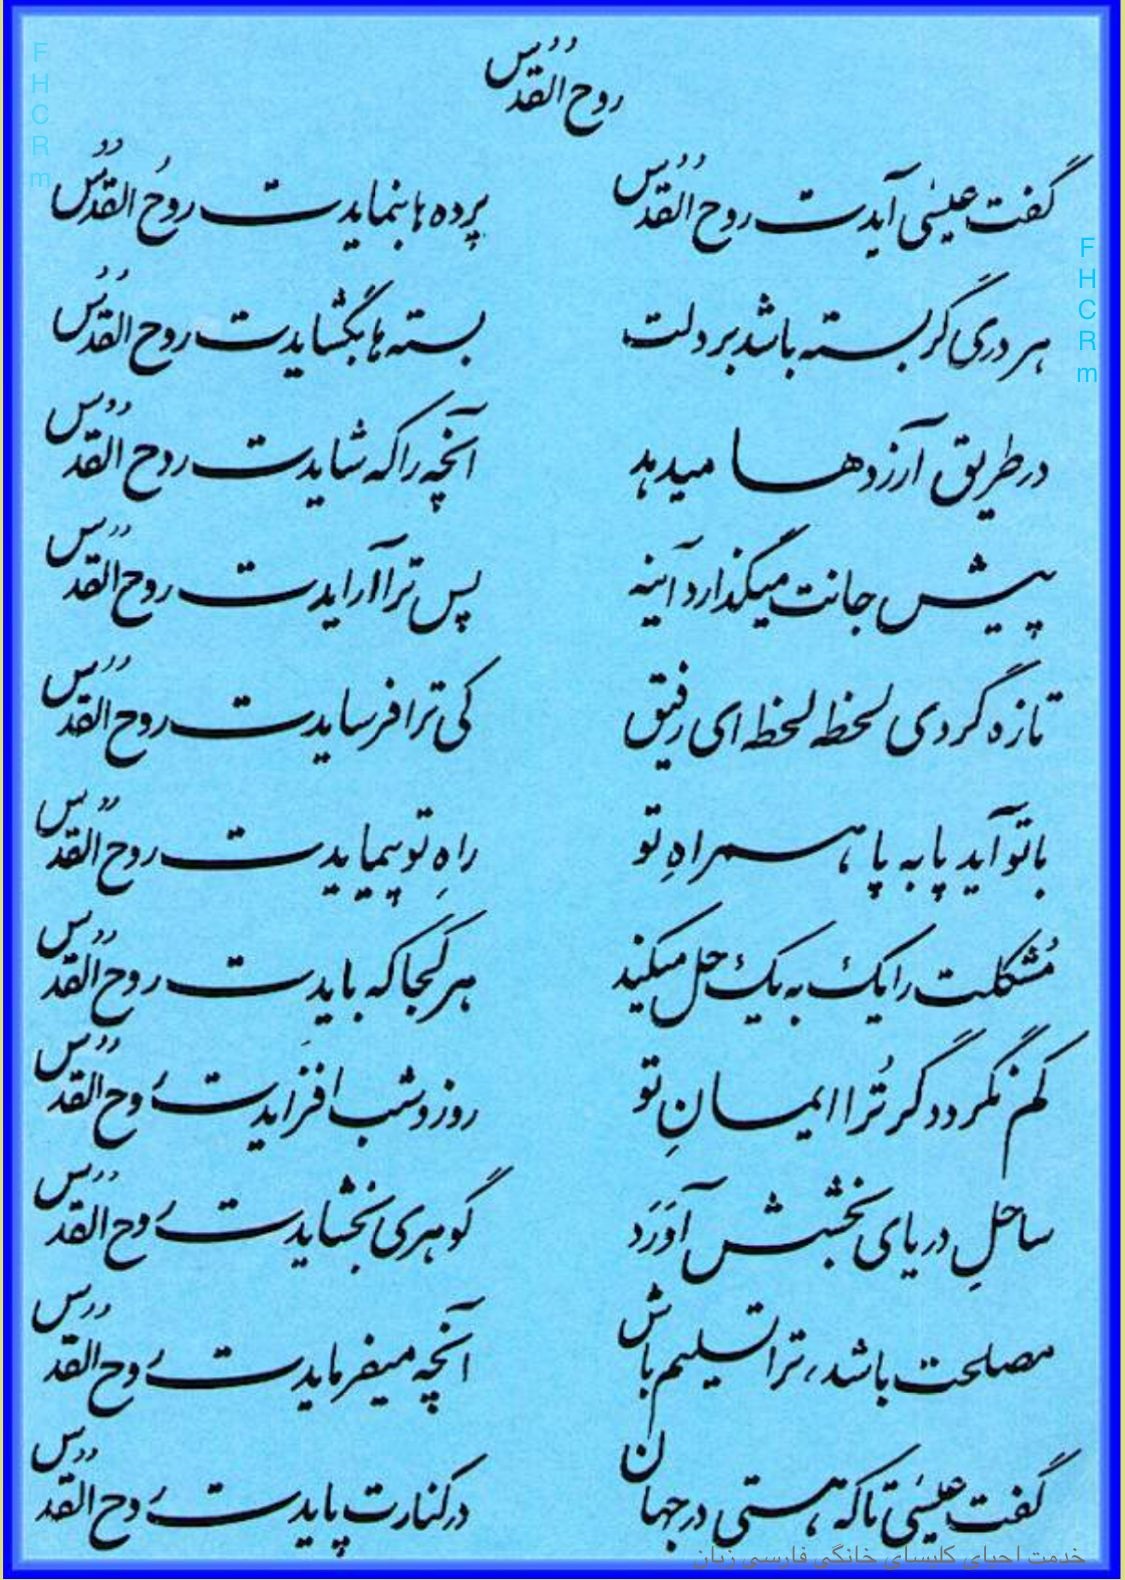 روح القُدُس
گفت عیسٰی آیدت روح القُدُس
پرده ها بنمایدت روحُ القُدُس
هر دری گر بسته باشد بر دلت
بسته ها بگشایدت روح القُدُس
در طریق آرزوها میدهد
آنچه را که شایدت روح القُدُس
پیش جانت میگذارد آینه
پس ترا آرایدت روح القُدُس
تازه گردی لحظه لحظه ای رفیق
کی ترا فرسایدت روح القُدُس
با تو آید پا به پا همراهِ تو
راهِ تو پیمایدت روح القُدُس
مُشکلت را یک به یک حل میکند
هر کجا که بایدت روح القُدُس
کم نگردد گر تُرا ایمانِ تو
روز و شب افزایدت روح القُدُس
ساحلِ دریای بخشش آوَرَد
گوهری بخشایدت روح القُدُس
مصلحت باشد ترا تسلیم باش
آنچه میفرمایدت روح القُدُس
گفت عیسٰی تا که هستی در جهان
در کنارت پایدت روح القُدُس
خدمت احیای کلیسای خانگی فارسی زبان
FHCRm
FHCRm